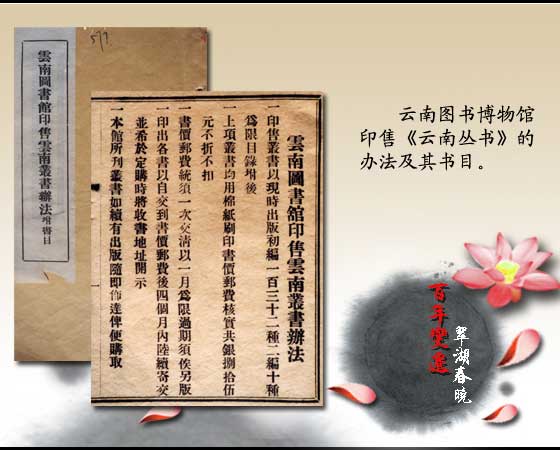 577
雲南圖書館印售雲南叢書辦法附書目
雲南圖書館印售雲南叢書辦法
一印售叢書以現時出版初編一百三十二種二編十種
爲限目錄坿後
一上項叢書均用棉紙刷印書價郵費核實共銀捌拾伍
元不折不扣
一書價郵費統須一次交清以一月爲限過期須俟另版
一印出各書以自交到書價郵費後四個月內陸續寄交
並希於定購時將收書地址開示
一本館所刊叢書如續有出版隨即佈達俾便購取
云南图书博物馆
印售《云南丛书》的
办法及其书目。
百年变迁
翠湖春晓